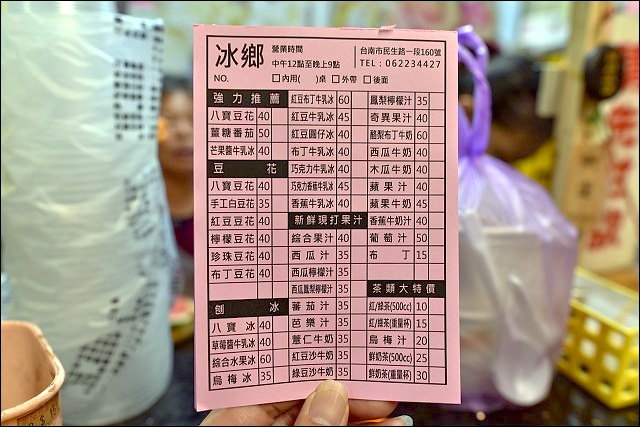 冰鄉
營業時間
中午12點至晚上9點
台南市民生路一段160號
TEL：062234427
NO.
□內用( )桌 □外帶 □後面
強力推薦
八寶豆花 40
薑糖番茄 50
芒果醬牛乳冰 40
豆花
八寶豆花 40
手工白豆花 35
紅豆豆花 40
檸檬豆花 40
珍珠豆花 40
布丁豆花 40
刨冰
八寶冰 40
草莓醬牛乳冰 40
綜合水果冰 60
烏梅冰 35
紅豆布丁牛乳冰 60
紅豆牛乳冰 45
紅豆圓仔冰 40
布丁牛乳冰 40
巧克力牛乳冰 40
巧克力香蕉牛乳冰 45
香蕉牛乳冰 40
新鮮現打果汁
綜合果汁 40
西瓜汁 35
西瓜檸檬汁 35
西瓜鳳梨檸檬汁 35
蕃茄汁 35
芭樂汁 35
薏仁牛奶 35
紅豆沙牛奶 35
綠豆沙牛奶 35
鳳梨檸檬汁 35
奇異果汁 40
酪梨布丁牛奶 60
西瓜牛奶 40
木瓜牛奶 40
蘋果汁 40
蘋果牛奶 45
香蕉牛奶汁 40
葡萄汁 50
布丁 15
茶類大特價
紅/綠茶(500cc) 10
紅/綠茶(重量杯) 15
烏梅汁 20
鮮奶茶(500cc) 25
鮮奶茶(重量杯) 30